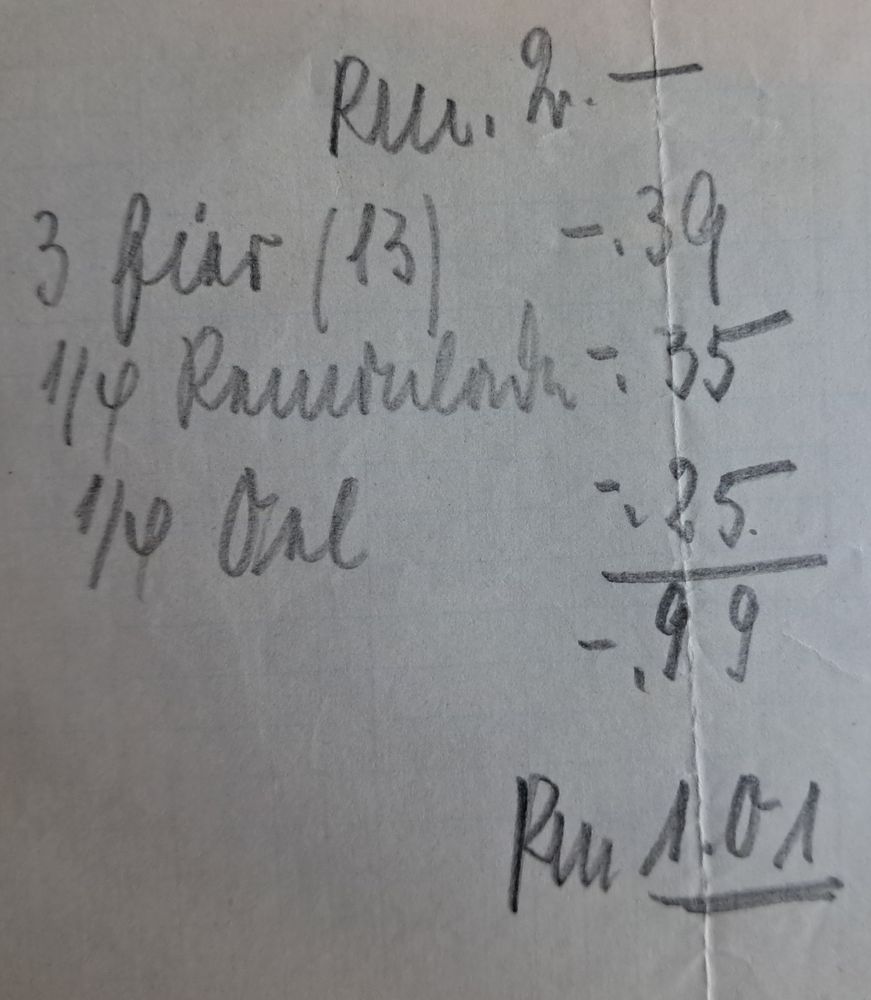 Rm. 2.—
3 Eier (13) -.39
1/4 Remoulade -.35
1/4 Oel -.25
-.99
Rm 1.01